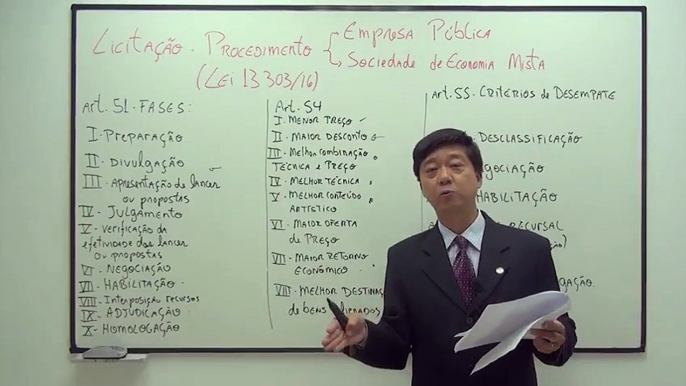 Licitação. Procedimento
Empresa Pública
Sociedade de Economia Mista
(Lei 13 303/16)
Art. 51. FASES:
I. Preparação
II. Divulgação
III. Apresentação de lances
ou propostas
IV. Julgamento
V. Verificação da
efetividade dos lances
ou propostas
VI. Negociação
VII. Habilitação
VIII. Interposição recursos
IX. Adjudicação
X. Homologação
Art. 54
I. Menor Preço
II. Maior Desconto
III. Melhor combinação
Técnica e Preço
IV. Melhor Técnica
V. Melhor Conteúdo
Artístico
VI. Maior Oferta
de Preço
VII. Maior Retorno
Econômico
VIII. Melhor
de bens
Art. 55. Critérios de Desempate
Desclassificação
Recursal